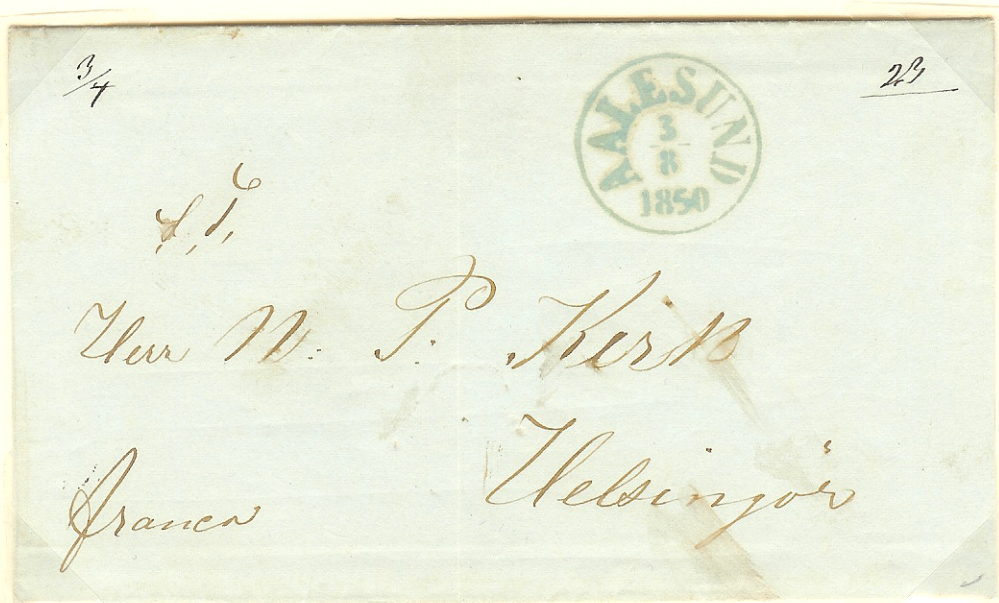 3/4
23
AALESUND
3
8
1850
S. T.
Herr N. P. Kirk
Helsingör
franco